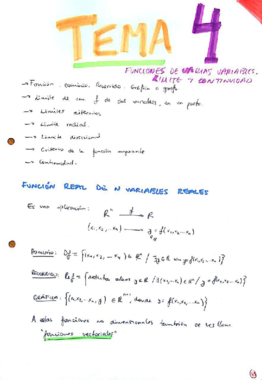 TEMA 4
FUNCIONES DE VARIAS VARIABLES.
LÍMITE Y CONTINUIDAD
→ Función. Dominio. Recorrido. Gráfica o grafo
→ Límite de una f de dos variables, en un punto.
→ Límites reiterados
→ Límite radial.
→ Límite direccional
→ Criterio de la función mayorante
→ Continuidad.
FUNCIÓN REAL DE N VARIABLES REALES
Es una aplicación:
Rⁿ —f→ R
(x₁, x₂, ... xₙ) → y = f(x₁, x₂ ... xₙ)
DOMINIO: Df = {(x₁, x₂, ... xₙ) ∈ Rⁿ / ∃y ∈ R y = f(x₁, x₂ ... xₙ)}
RECORRIDO: Rf = { valores y ∈ R / ∃(x₁ ... xₙ) ∈ Rⁿ / y = f(x₁, x₂ ... xₙ)}
GRÁFICA: {(x₁, x₂ ... xₙ, y) ∈ Rⁿ⁺¹, donde y = f(x₁, x₂ ... xₙ)}
A estas funciones dimensionales también se les llama
"funciones vectoriales"